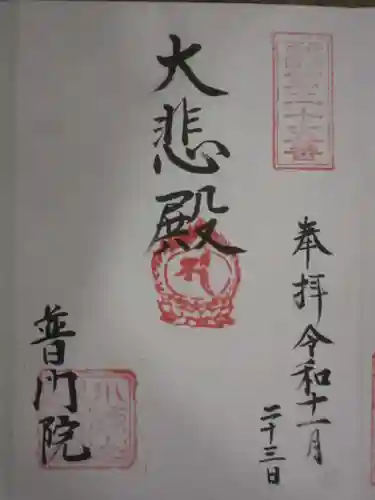 奉拝令和十一月
二十三日
大悲殿
普門院